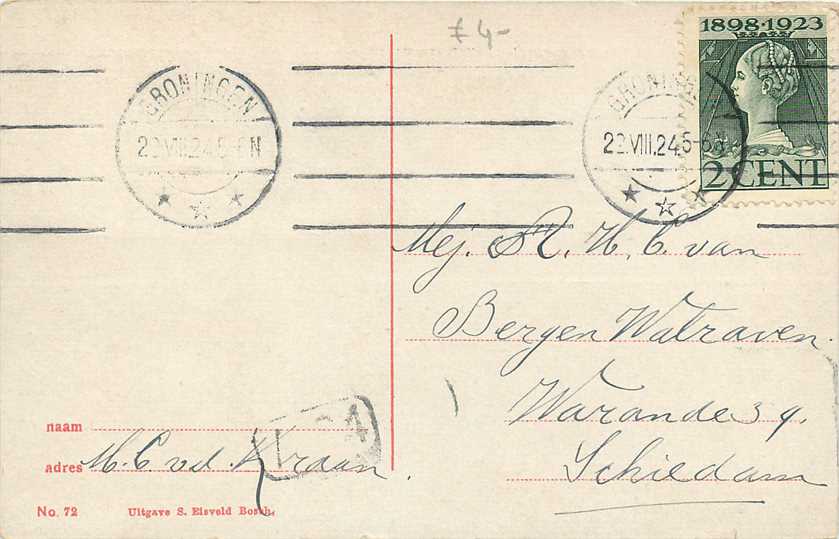 £ 4-
1898·1923
2 CENT
GRONINGEN
22.VIII.24.5-6N
GRONINGEN
22.VIII.24 5-6N
Mej. A. H. C. van
Bergen Walraven.
Warande 39.
Schiedam
naam
adres M. C. v.d. Kraan.
No. 72 Uitgave S. Eisveld Bosch.